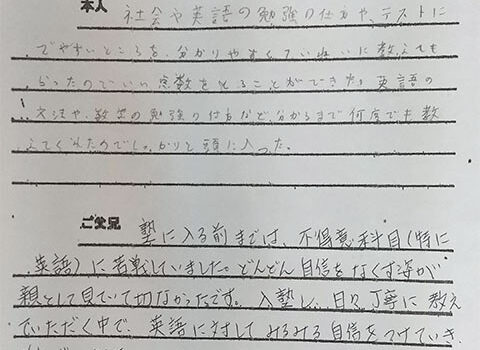 本人
社会や英語の勉強の仕方や、テストに
でやすいところを、分かりやすくていねいに教えても
らったのでいい点数をとることができた。英語の
文法や、数学の勉強の仕方など、分かるまで何度でも教
えてくれたのでしっかりと頭に入った。
ご父兄
塾に入る前までは、不得意科目(特に
英語)に苦戦していました。どんどん自信をなくす姿が
親として見ていて切なかったです。入塾し、日々丁寧に教え
ていただく中で、英語に対してみるみる自信をつけていき、